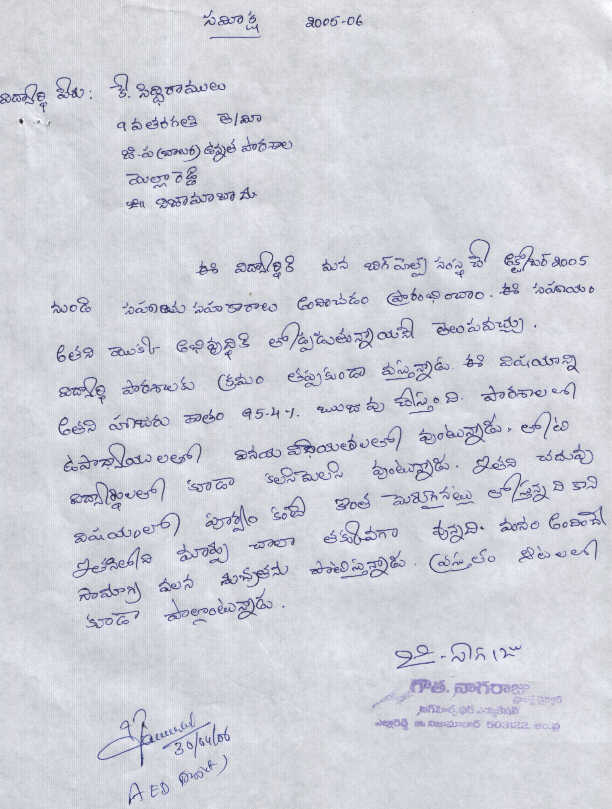 సమీక్ష 2005-06
విద్యార్థి పేరు: కే. సిద్దిరాములు
9వ తరగతి తె/మీ
జి.ప (బాలుర) ఉన్నత పాఠశాల
యెల్లారెడ్డి
జి॥ నిజామాబాదు
ఈ విద్యార్థికి మన బిగ్‌హెల్ప్ సంస్థచే అక్టోబర్ 2005
నుండి సహాయ సహకారాలు అందించడం ప్రారంభించాం. ఈ సహాయం
అతని యొక్క అభివృద్ధికి తోడ్పడుతున్నాయని తెలుపవచ్చు.
విద్యార్థి పాఠశాలకు క్రమం తప్పకుండా వస్తున్నాడు. ఈ విషయాన్ని
అతని హాజరు శాతం 95.4%. ఋజువు చేస్తుంది. పాఠశాలలో
ఉపాధ్యాయులతో వినయ విధేయతలతో వుంటున్నాడు. తోటి
విద్యార్థులతో కూడా కలిసిమెలసి వుంటున్నాడు. ఇతని చదువు
విషయంలో పూర్వం కంటే కొంత మెరుగైనట్లు తోస్తున్నది కాని
ఇతనిలోని మార్పు చాలా తక్కువగా వున్నది. మనం అందించే
సామాగ్రి వలన శుభ్రతను పాటిస్తున్నాడు. ప్రస్తుతం ఆటలలో
కూడా పాల్గొంటున్నాడు.
జి. నాగరాజు
గౌత. నాగరాజు
బిగ్‌హెల్ప్ ఫర్ ఎడ్యుకేషన్
ఎల్లారెడ్డి జి. నిజామాబాద్ 503122. ఆం.ప్ర
30/04/06
AED